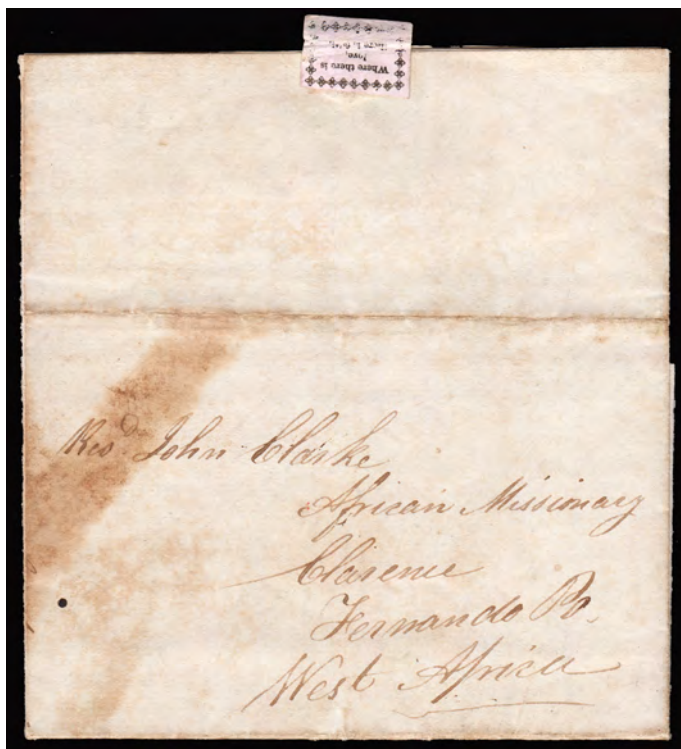 Where there is
love,
Revd. John Clarke
African Missionary
Clarence
Fernando Po.
West Africa